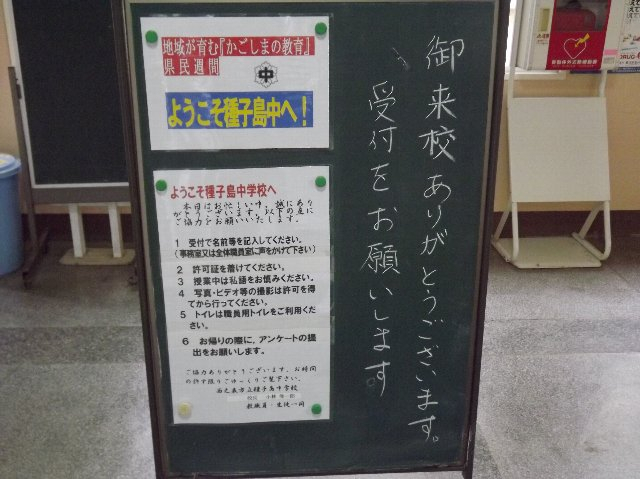 地域が育む『かごしまの教育』
県民週間
中
ようこそ種子島中へ!
ようこそ種子島中学校へ
本日はお忙しい中、誠にあり
がとうございます。以下の点に
ご協力をお願いいたします。
1 受付で名前等を記入してください。
(事務室又は全体職員室に声をかけて下さい)
2 許可証を着けてください。
3 授業中は私語をお慎みください。
4 写真・ビデオ等の撮影は許可を得
てから行ってください。
5 トイレは職員用トイレをご利用くだ
さい。
6 お帰りの際に,アンケートの提
出をお願いします。
ご協力ありがとうございます。お時間
の許す限りごゆっくりご覧下さい。
西之表市立種子島中学校
校長 小林
教職員・生徒一同
御来校ありがとうございます。
受付をお願いします